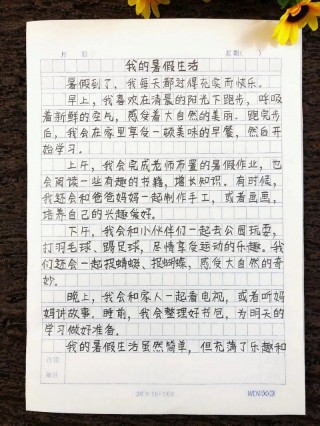 月
星期（ ）
我的暑假生活
暑假到了，我每天都过得充实而快乐。
早上，我喜欢在清晨的阳光下跑步，呼吸
着新鲜的空气，感受着大自然的美丽。跑完步
后，我会在家里享受一顿美味的早餐，然后开
始学习。
上午，我会完成老师布置的暑假作业，也
会阅读一些有趣的书籍，增长知识。有时候，
我还会和爸爸妈妈一起制作手工，或者画画，
培养自己的兴趣爱好。
下午，我会和小伙伴们一起去公园玩耍，
打羽毛球、踢足球，尽情享受运动的乐趣。我
们还会一起捉蜻蜓、捉蝴蝶，感受大自然的奇
妙。
晚上，我会和家人一起看电视，或者听妈
妈讲故事。睡前，我会整理好书包，为明天的
学习做好准备。
我的暑假生活虽然简单，但充满了乐趣和